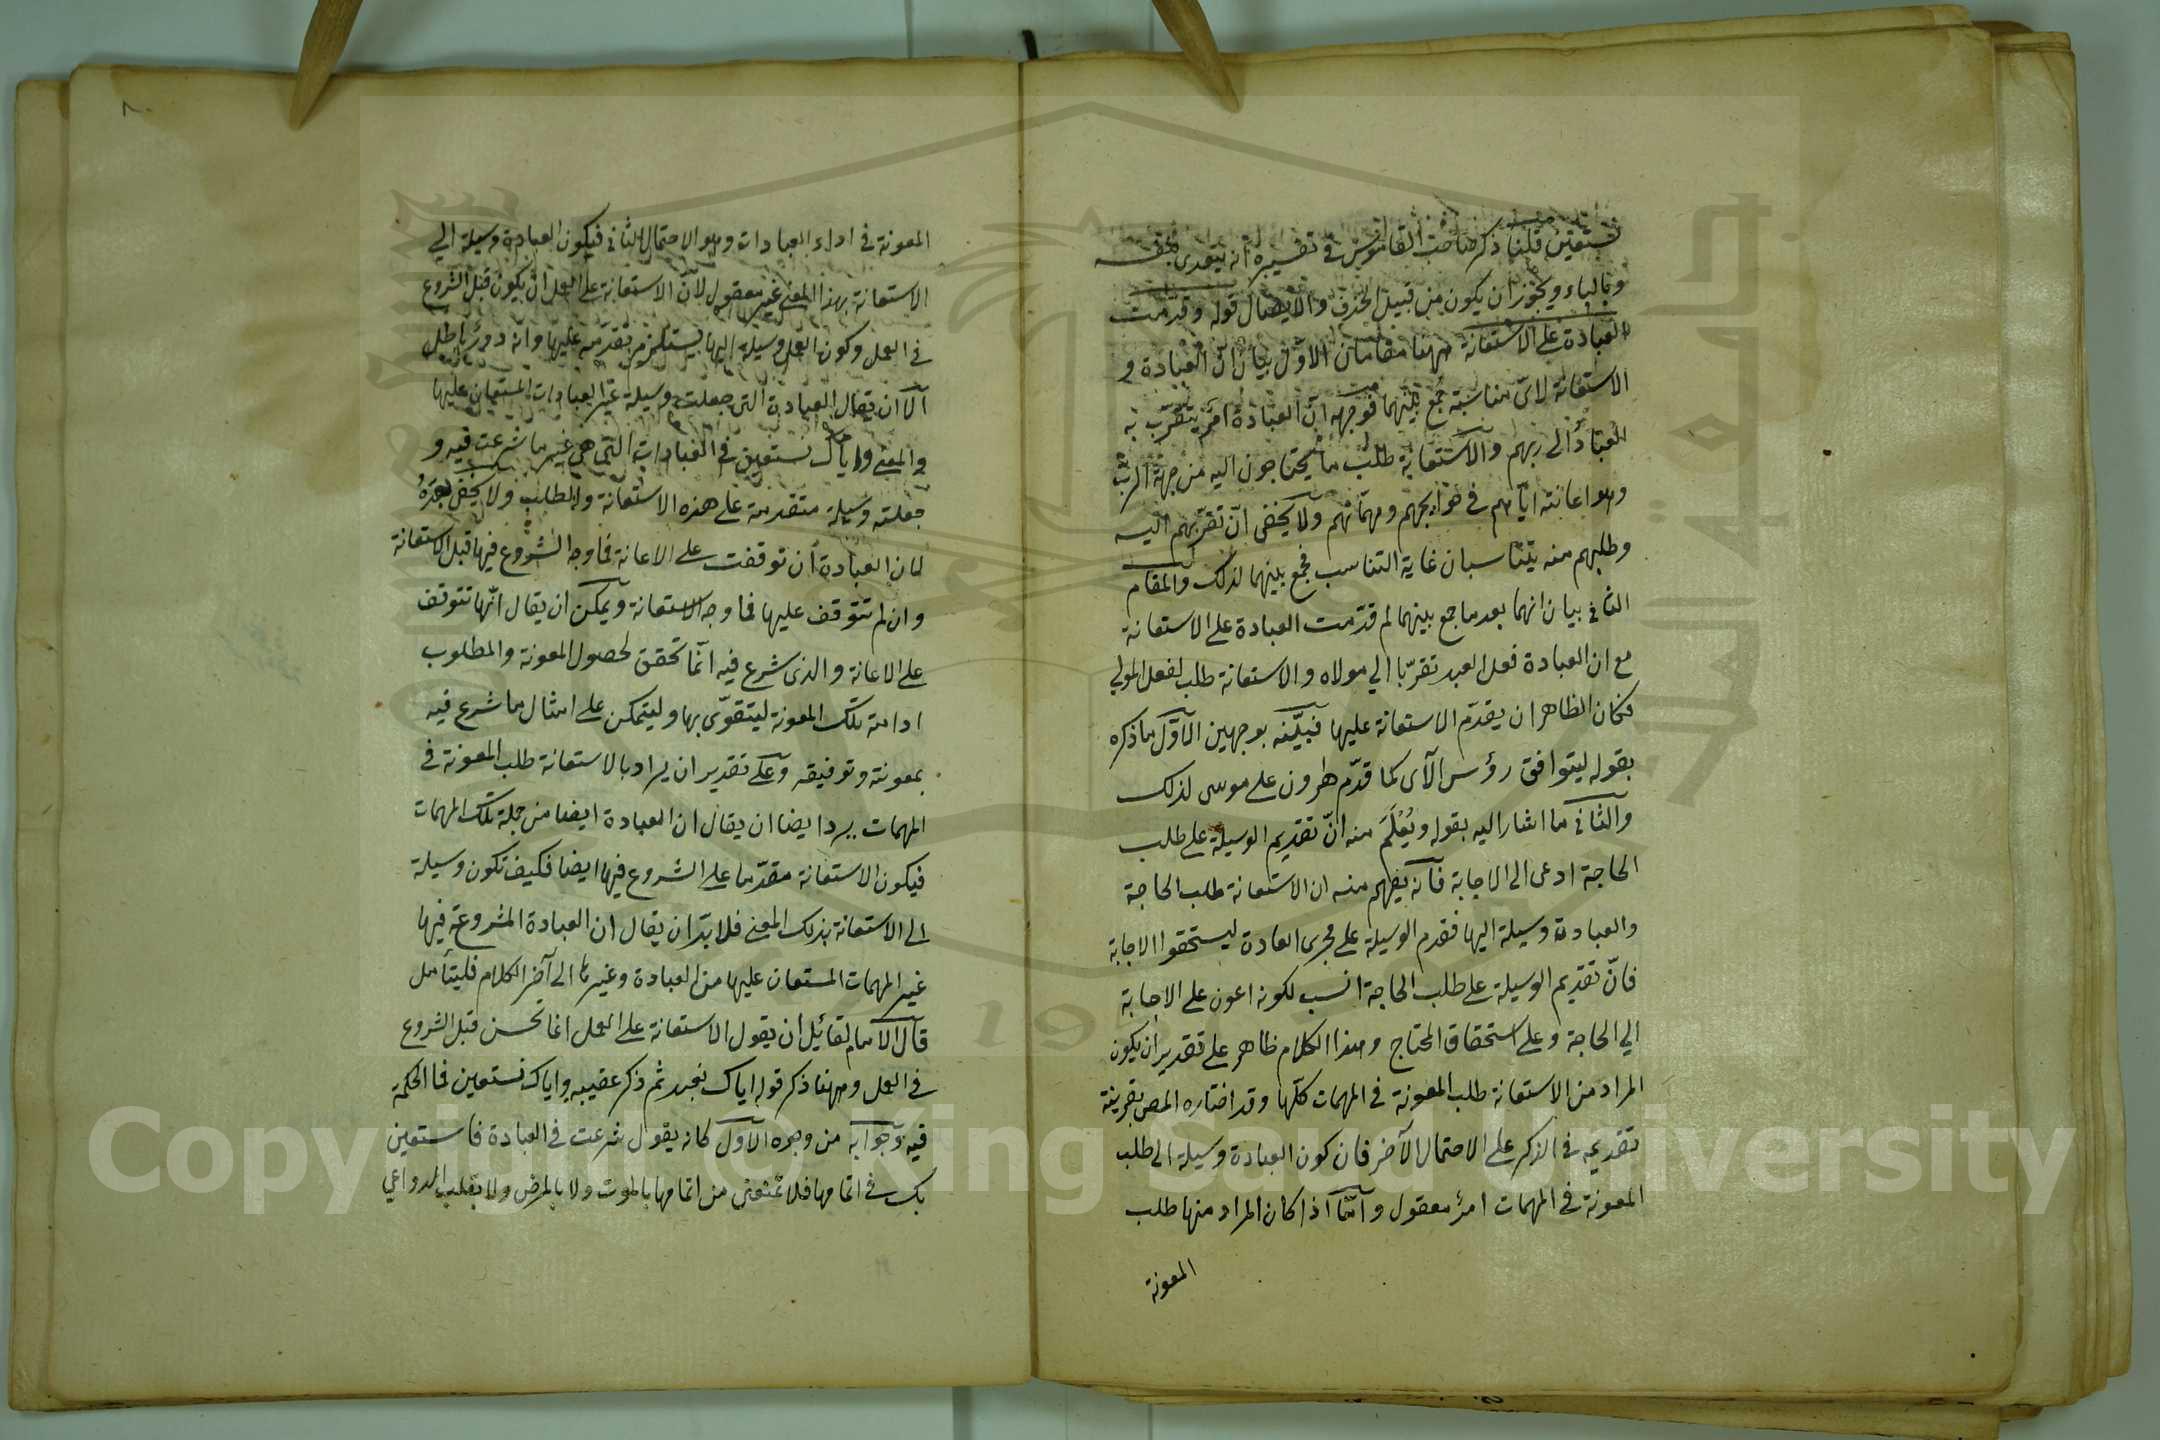 نستعين قلنا ذكر صاحب القاموس في تفسيره أنه يتعدى بنفسه
وبالباء ويجوز ان يكون من قبيل الحذف والايصال قوله وقدمت
العبادة على الاستعانة ههنا مقامان الاول بيان ان العبادة و
الاستعانة لاى مناسبة جمع بينهما فوجهه ان العبادة امر يتقرب به
العباد الى ربهم والاستعانة طلب ما يحتاجون اليه من جهة الرب
وهو اعانته اياهم في حوايجهم ومهماتهم ولا يخفى ان تقربهم اليه
وطلبهم منه يتناسبان غاية التناسب فجمع بينهما لذلك والمقام
الثاني بيان انهما بعد ما جمع بينهما لم قدمت العبادة على الاستعانة
مع ان العبادة فعل العبد تقربا الي مولاه والاستعانة طلب لفعل المولي
فكان الظاهر ان يقدم الاستعانة عليها فبينه بوجهين الاول ما ذكره
بقوله ليتوافق رؤس الآى كما قدم هرون على موسى لذلك
والثاني ما اشار اليه بقوله ويُعْلَمَ منه انّ تقديم الوسيلة على طلب
الحاجة ادعى الى الاجابة فانه يفهم منه ان الاستعانة طلب الحاجة
والعبادة وسيلة اليها فقدم الوسيلة على مجرى العادة ليستحقوا الاجابة
فانّ تقديم الوسيلة على طلب الحاجة انسب لكونه اعون على الاجابة
الي الحاجة وعلى استحقاق المحتاج وهذا الكلام ظاهر على تقدير ان يكون
المراد من الاستعانة طلب المعونة في المهمات كلها وقد اختاره المص بقرينة
تقديمه في الذكر على الاحتمال الآخر فان كون العبادة وسيلة الى طلب
المعونة في المهمات امر معقول وامّا اذا كان المراد منها طلب
المعونة
المعونة في اداء العبادات وهو الاحتمال الثاني فيكون العبادة وسيلة الي
الاستعانة بهذا المعنى غير معقول لانّ الاستعانة على العمل ان يكون قبل الشروع
في العمل وكون العمل وسيلة اليها يستلزم تقدمه عليها وانه دور باطل
الا ان يقال العبادة التى جعلت وسيلة غير العبادات المستعان عليها
والمعنى واياك نستعين في العبادات التى هي غير ما شرعت فيه و
جعلته وسيلة متقدمة على هذه الاستعانة والطلب ولا يخفى بعده
لان العبادة ان توقفت على الاعانة فما وجه الشروع فيها قبل الاستعانة
وان لم تتوقف عليها فما وجه الاستعانة ويمكن ان يقال انّها تتوقف
على الاعانة والذى شرع فيه انما تحقق لحصول المعونة والمطلوب
ادامة تلك المعونة ليتقوّى بها وليتمكن على امثال ما شرع فيه
بمعونته وتوفيقه وعلى تقدير ان يراد بالاستعانة طلب المعونة في
المهمات يرد ايضا ان يقال ان العبادة ايضا من جملة تلك المهمات
فيكون الاستعانة مقدّما على الشروع فيها ايضا فكيف تكون وسيلة
الى الاستعانة بذلك المعنى فلا بدّ ان يقال ان العبادة المشروعة فيها
غير المهمات المستعان عليها من العبادة وغيرها الى آخر الكلام فليتأمل
قال الامام لقائل ان يقول الاستعانة على العمل انما تحسن قبل الشروع
في العمل وههنا ذكر قوله اياك نعبد ثم ذكر عقيبه واياك نستعين فما الحكمة
فيه وجوابه من وجوه الاول كانه يقول شرعت في العبادة فاستعين
بك في اتمامها فلا تمنعنى من اتمامها بالموت ولا بالمرض ولا بقلب الدواعي
Copyright © King Saud University